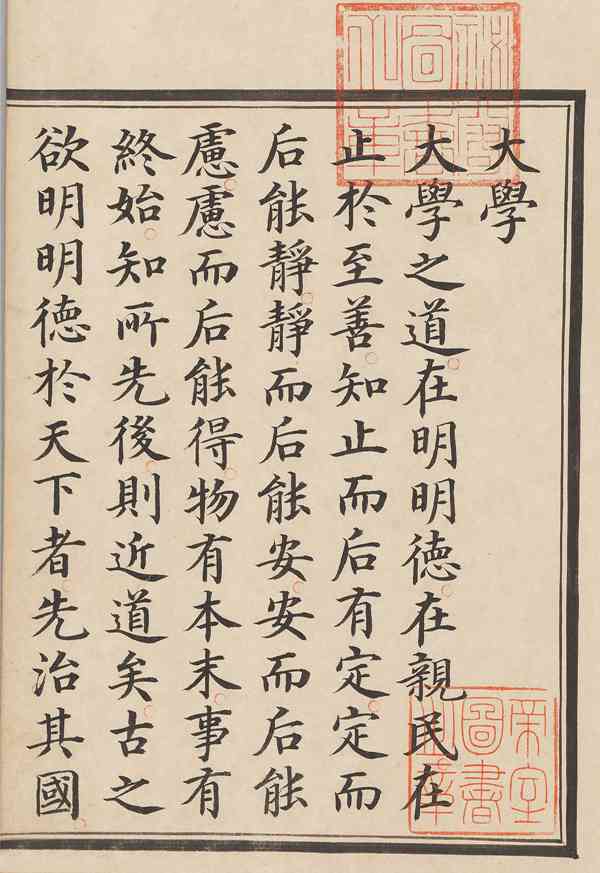 秘閣圖書之章
大學
大學之道在明明德在親民在
止於至善知止而后有定定而
后能靜靜而后能安安而后能
慮慮而后能得物有本末事有
終始知所先後則近道矣古之
欲明明德於天下者先治其國
帝室圖書之章